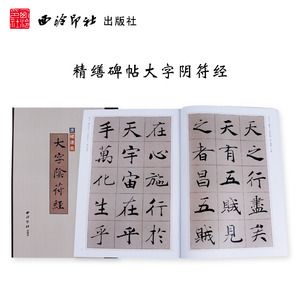 西泠印社 出版社
精缮碑帖大字阴符经
大字陰符經
西泠印社
天之行盡矣
天有五賊見
之者昌五賊
在心施行於
天宇宙在乎
手萬化生乎